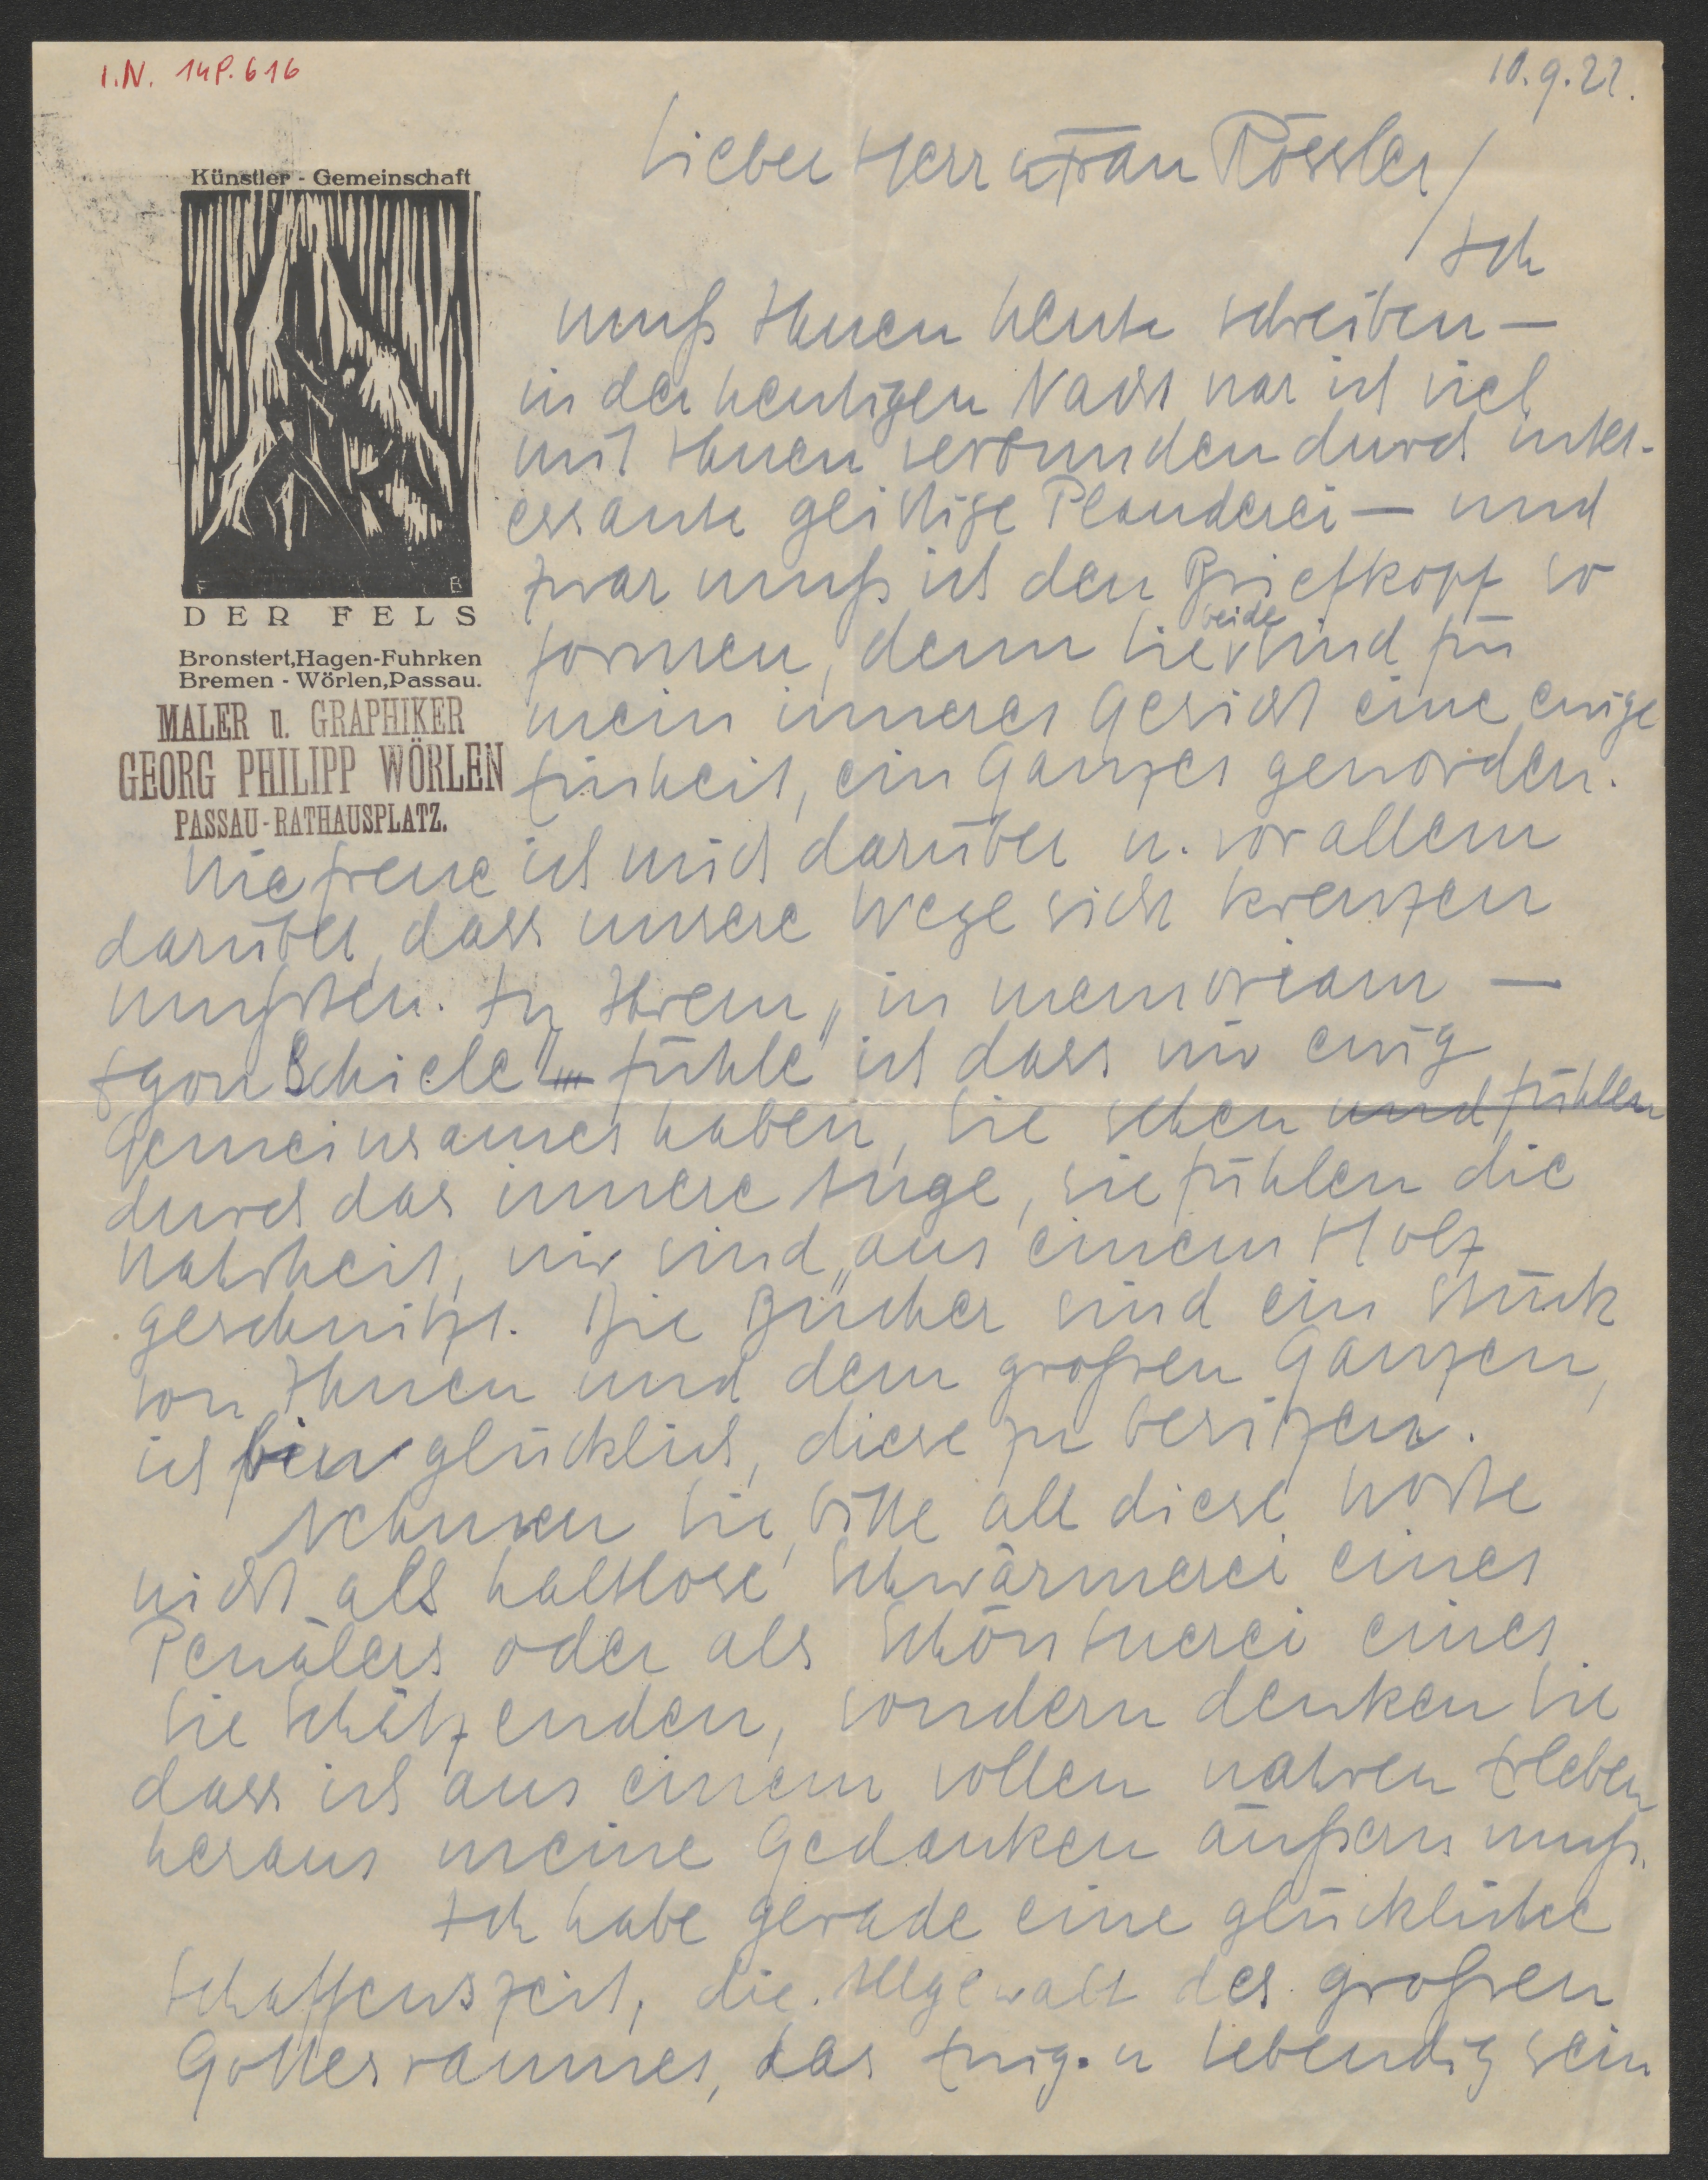 I.N. 148.616
10.9.22.
Künstler - Gemeinschaft
F B
DER FELS
Bronstert, Hagen-Fuhrken
Bremen - Wörlen, Passau.
MALER u. GRAPHIKER
GEORG PHILIPP WÖRLEN
PASSAU - RATHAUSPLATZ.
Lieber Herr u Frau Rössler /
Ich
muß Ihnen heute schreiben —
in der heutigen Nacht war ich viel
mit Ihnen verbunden durch inter-
essante geistige Plauderei — und
zwar muß ich den Briefkopf so
formen, denn Sie beide sind für
mein inneres Gesicht eine ewige
Einheit, ein Ganzes geworden.
Wie freue ich mich darüber u. vor allem
darüber, dass unsere Wege sich kreuzen
mußten. In Ihrem „in memoriam —
Egon Schiele" fühle ich dass wir ewig
Gemeinsames haben, Sie sehen und fühlen
durch das innere Auge, sie fühlen die
Wahrheit, wir sind „aus einem Holz
geschnitzt. Die Bücher sind ein Stück
von Ihnen und dem großen Ganzen,
ich bin glücklich, diese zu besitzen.
Nehmen Sie, bitte all diese Worte
nicht als haltlose Schwärmerei eines
Penälers oder als Schöntuerei eines
Sie Schätzenden, sondern denken Sie
dass ich aus einem vollen wahren Erleben
heraus meine Gedanken äußern muß.
Ich habe gerade eine glückliche
Schaffenszeit, die Allgewalt des großen
Gottesraumes, das Ewig. u lebendig sein